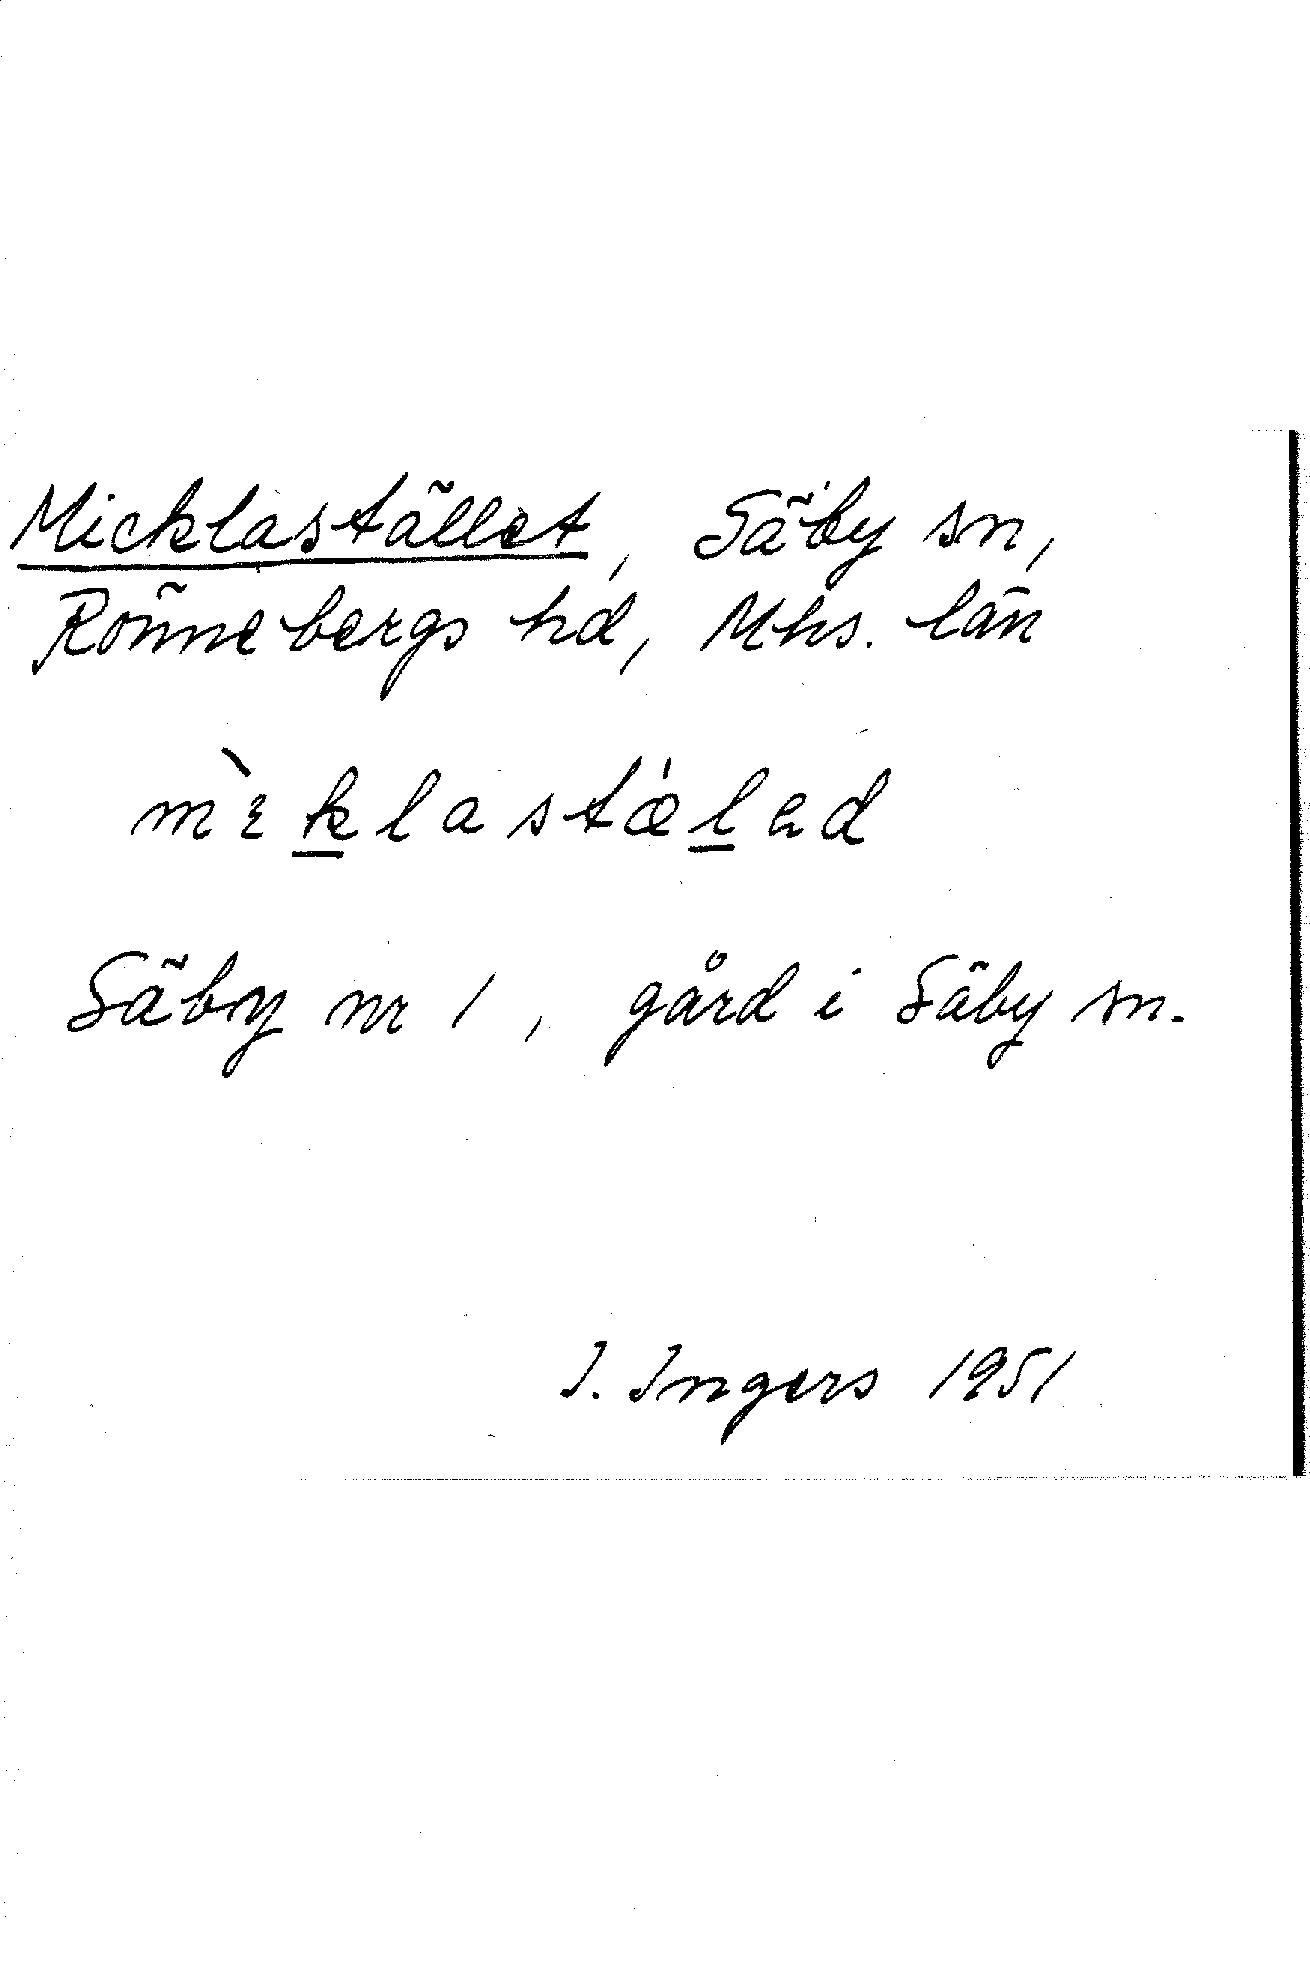 Micklastället, Säby sn,
Rönnebergs hd, Mhs. län
mὲklastǽləd
Säby nr 1, gård i Säby sn.
I. Ingers 1951